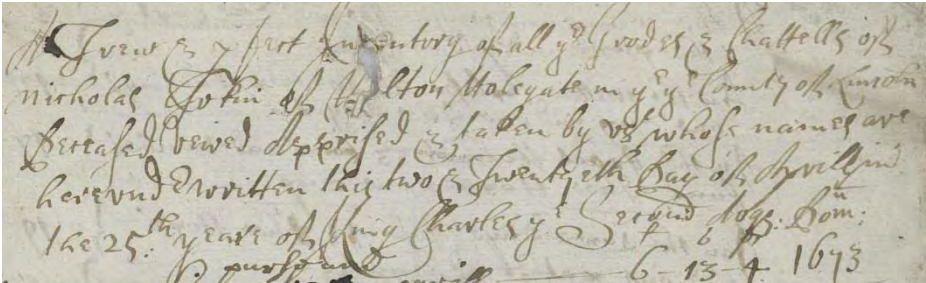 A Trew & pfect Inventory of all ye Goodes & Chattells of
Nicholas of Halton Holegate in ye ye County of Lincoln
deceased vewed Apprised & taken by vs whose names are
herevnder written this two & Twentyeth day of Aprill in
the 25th: yeare of King Charles ye Second Dom:
purse and 6 - 13 - 4 1673